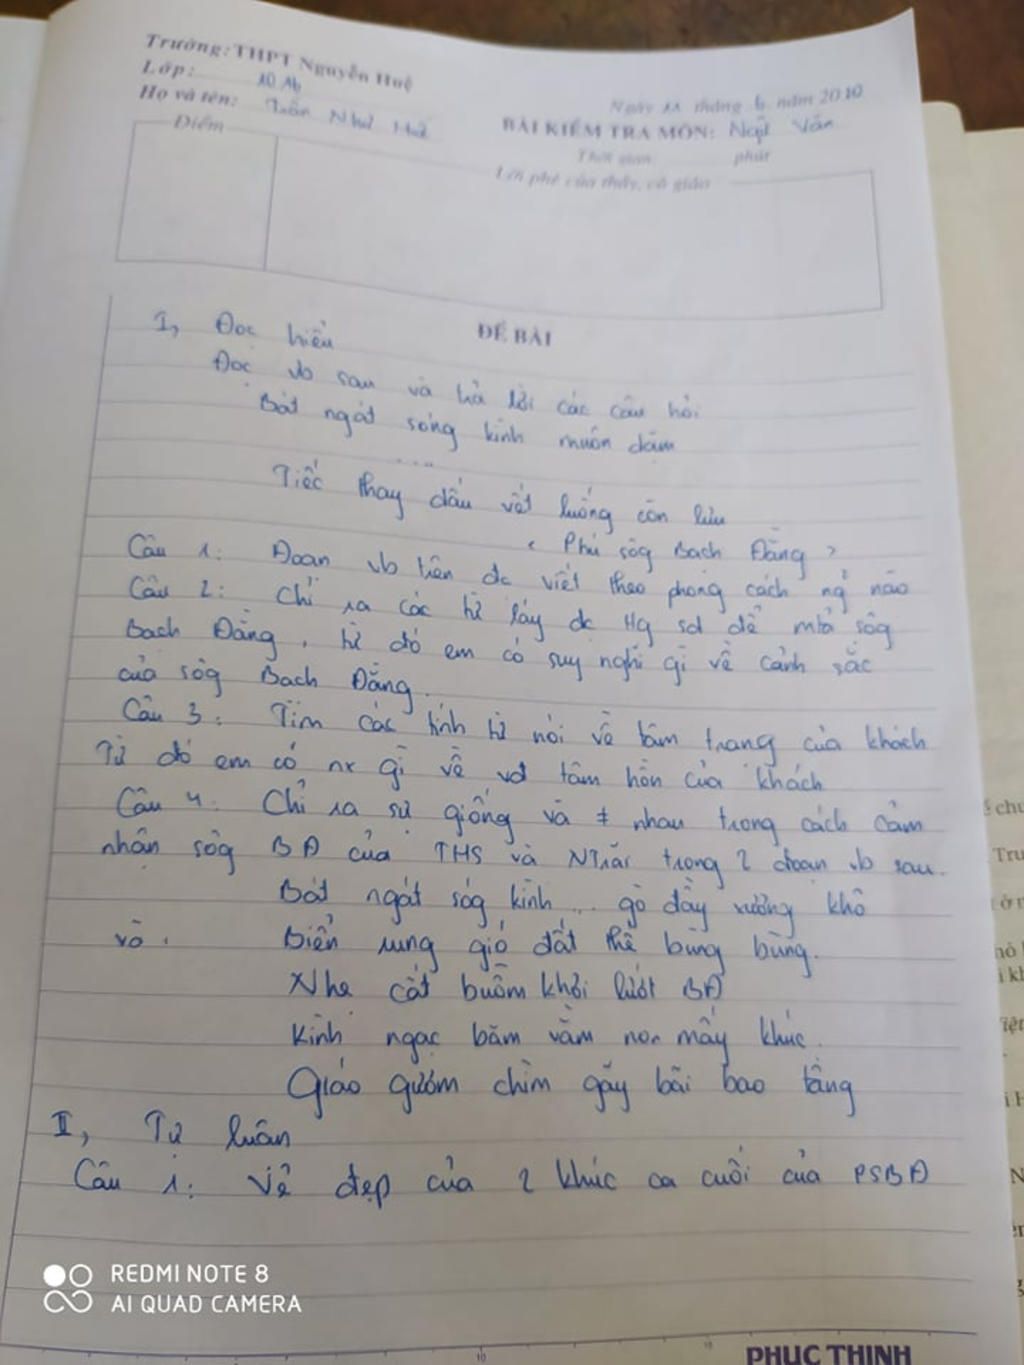 Trường: THPT Nguyễn Huệ
Lớp: 10A6
Họ và tên: Trần Như
Ngày 11 tháng 6 năm 2010
BÀI KIỂM TRA MÔN: Ngữ Văn
Thời gian: phút
Điểm
Lời phê của thầy, cô giáo
ĐỀ BÀI
I, Đọc hiểu
Đọc vb sau và trả lời các câu hỏi
Bát ngát sóng kình muôn dặm
...
Tiếc thay dấu vết luống còn lưu
< Phú sôg Bạch Đằng >
Câu 1: Đoạn vb trên đc viết theo phong cách ng² nào
Câu 2: Chỉ ra các từ láy đc sd để mtả sôg
Bạch Đằng, từ đó em có suy nghĩ gì về cảnh sắc
của sôg Bạch Đằng.
Câu 3: Tìm các tính từ nói về tâm trạng của khách
Từ đó em có nx gì về vđ tâm hồn của khách
Câu 4: Chỉ ra sự giống và ≠ nhau trong cách cảm
nhận sôg BĐ của THS và NTrãi trong 2 đoạn vb sau.
Bát ngát sóg kình ... gò đầy xương khô
Biển rung gió bấc thế bừng bừng.
Nhẹ cất buồm lướt BĐ
Kình ngạc băm vằm non mấy khúc.
Giáo gươm chìm gãy bãi bao tầng
II, Tự luận
Câu 1: Vẻ đẹp của 2 khúc ca cuối của PSBĐ
REDMI NOTE 8
AI QUAD CAMERA
10
PHUC THINH